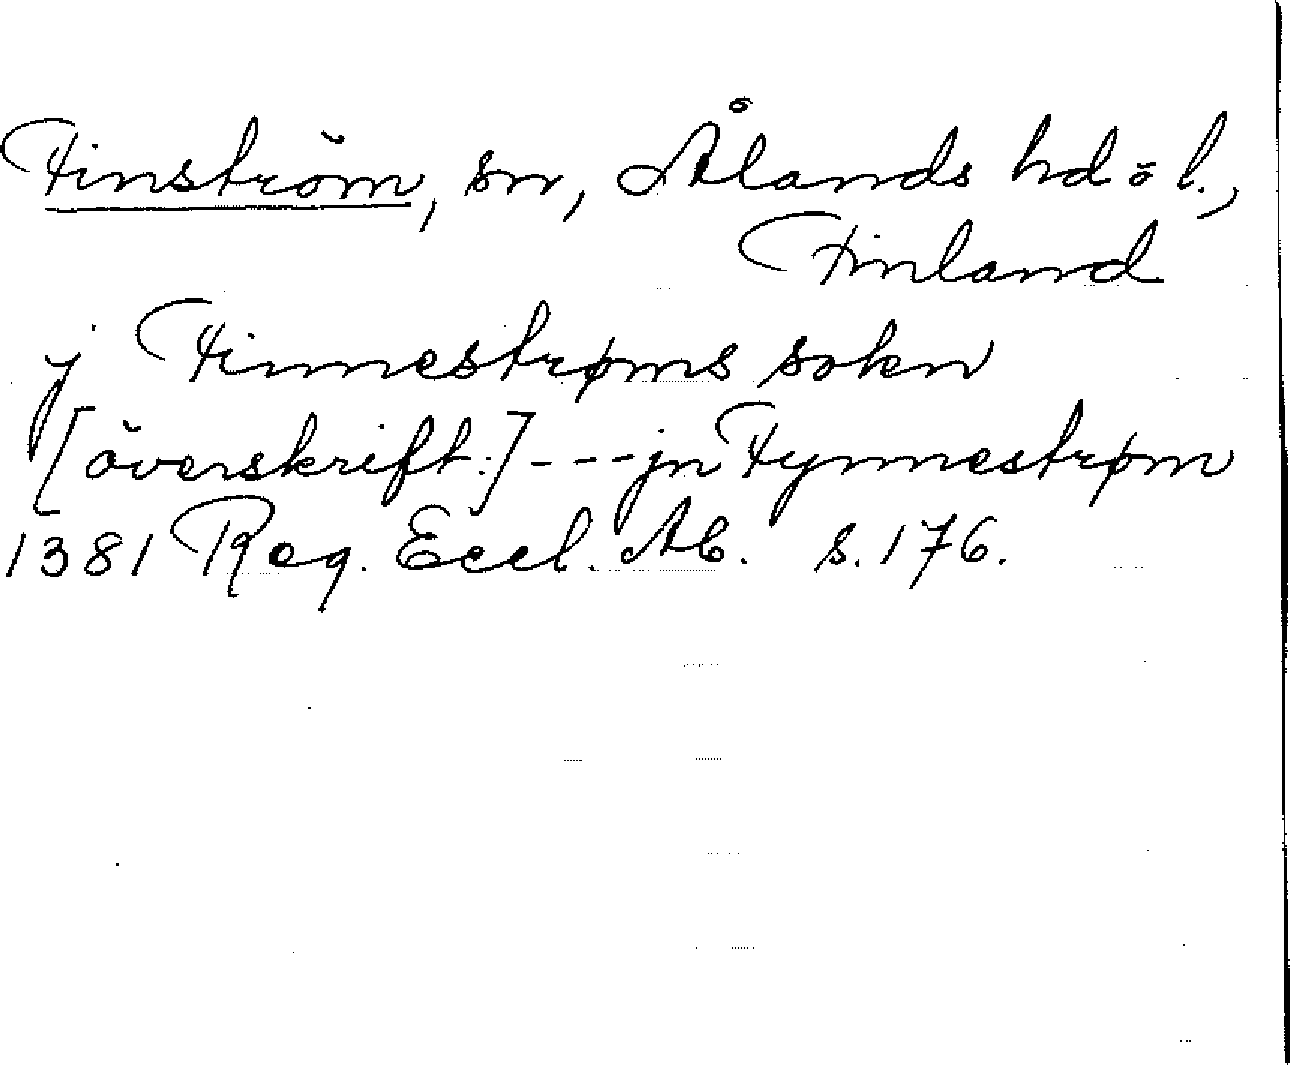 Finström, sn, Ålands hd o l.,
Finland
j Finnestrøms sokn
[överskift:] - - - jn Fynnestrøm
1381 Reg. Eccl. Ab. s. 176.